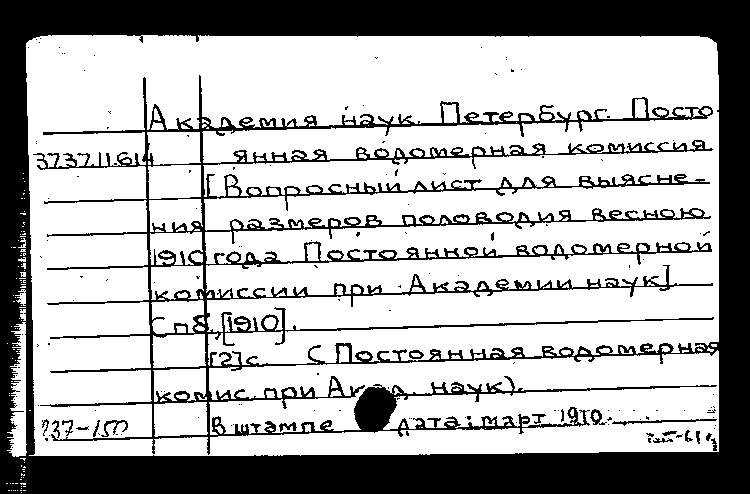 Академия наук. Петербург. Посто-
37.37.11.614 янная водомерная комиссия
[Вопросный лист для выясне-
ния размеров половодия весною
1910 года Постоянной водомерной
комиссии при Академии наук]
Спб, [1910].
[2] с. (Постоянная водомерная
комис. при Акад. наук).
В штампе дата: март 1910.
237-150